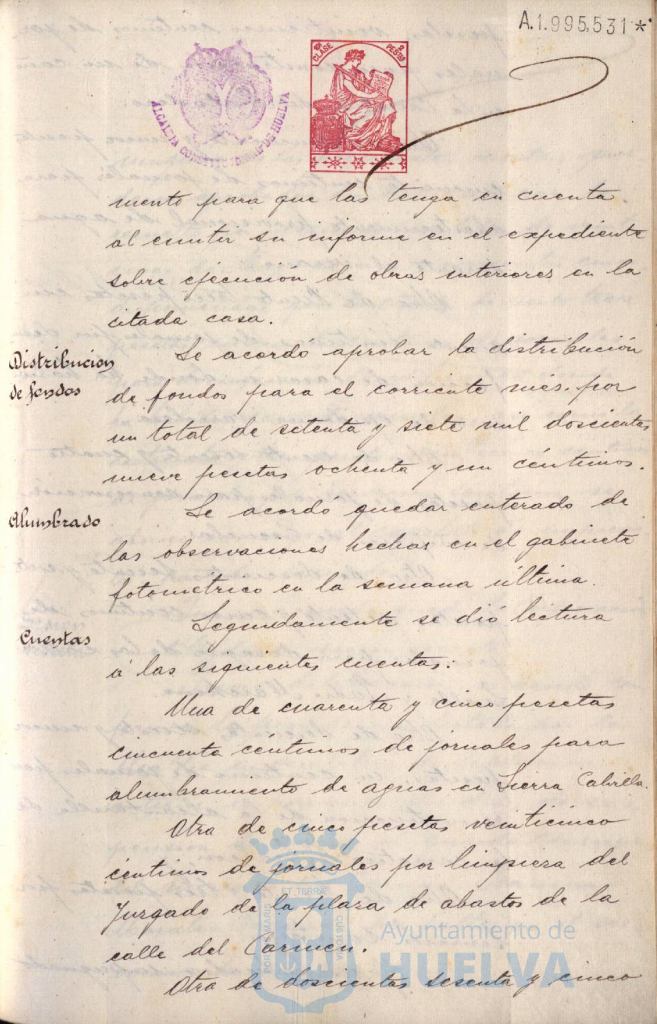 A.1.995,531*
10ª CLASE 2 PESETAS
ALCALDIA CONSTITUCIONAL DE HUELVA
miento para que las tenga en cuenta
al emitir su informe en el expediente
sobre ejecución de obras interiores en la
citada casa.
Distribucion
de fondos
Se acordo aprobar la distribución
de fondos para el corriente més por
un total de setenta y siete mil doscientas
nueve pesetas ochenta y un céntimos.
Alumbrado
Se acordo quedar enterado de
las observaciones hechas en el gabinete
fotométrico en la semana última.
Cuentas
Seguidamente se dió lectura
á las siguientes cuentas:
Una de cuarenta y cinco pesetas
cincuenta céntimos de jornales para
alumbramiento de aguas en Sierra Cabrella.
Otra de cinco pesetas veinticinco
céntimos de jornales por limpieza del
Juzgado de la plaza de abastos de la
calle del Carmen.
Otra de doscientas sesenta y cinco
Ayuntamiento de
HUELVA